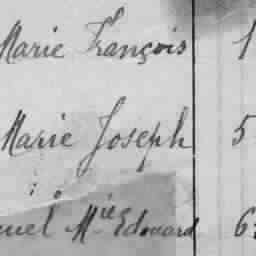 Marie François 1
Marie Joseph 5
uel Mie Edouard 6